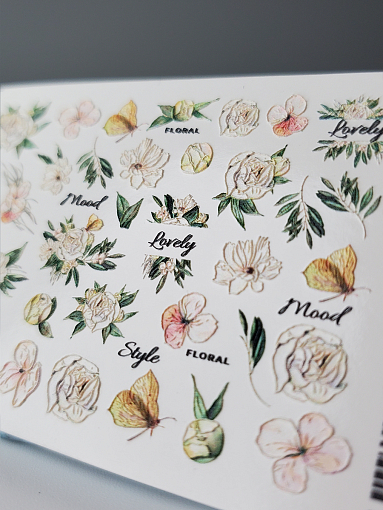 FLORAL
Lovely
Mood
Lovely
Mood
Style
FLORAL